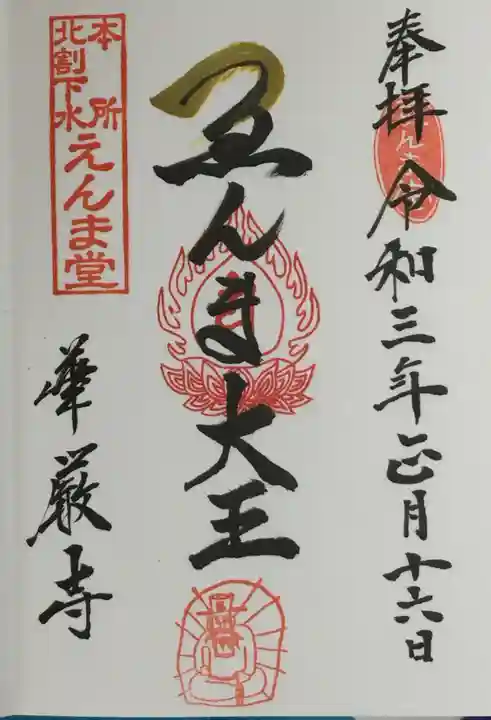 奉拝
令和三年正月十六日
ゑんま大王
本所
北割下水
えんま堂
華厳寺